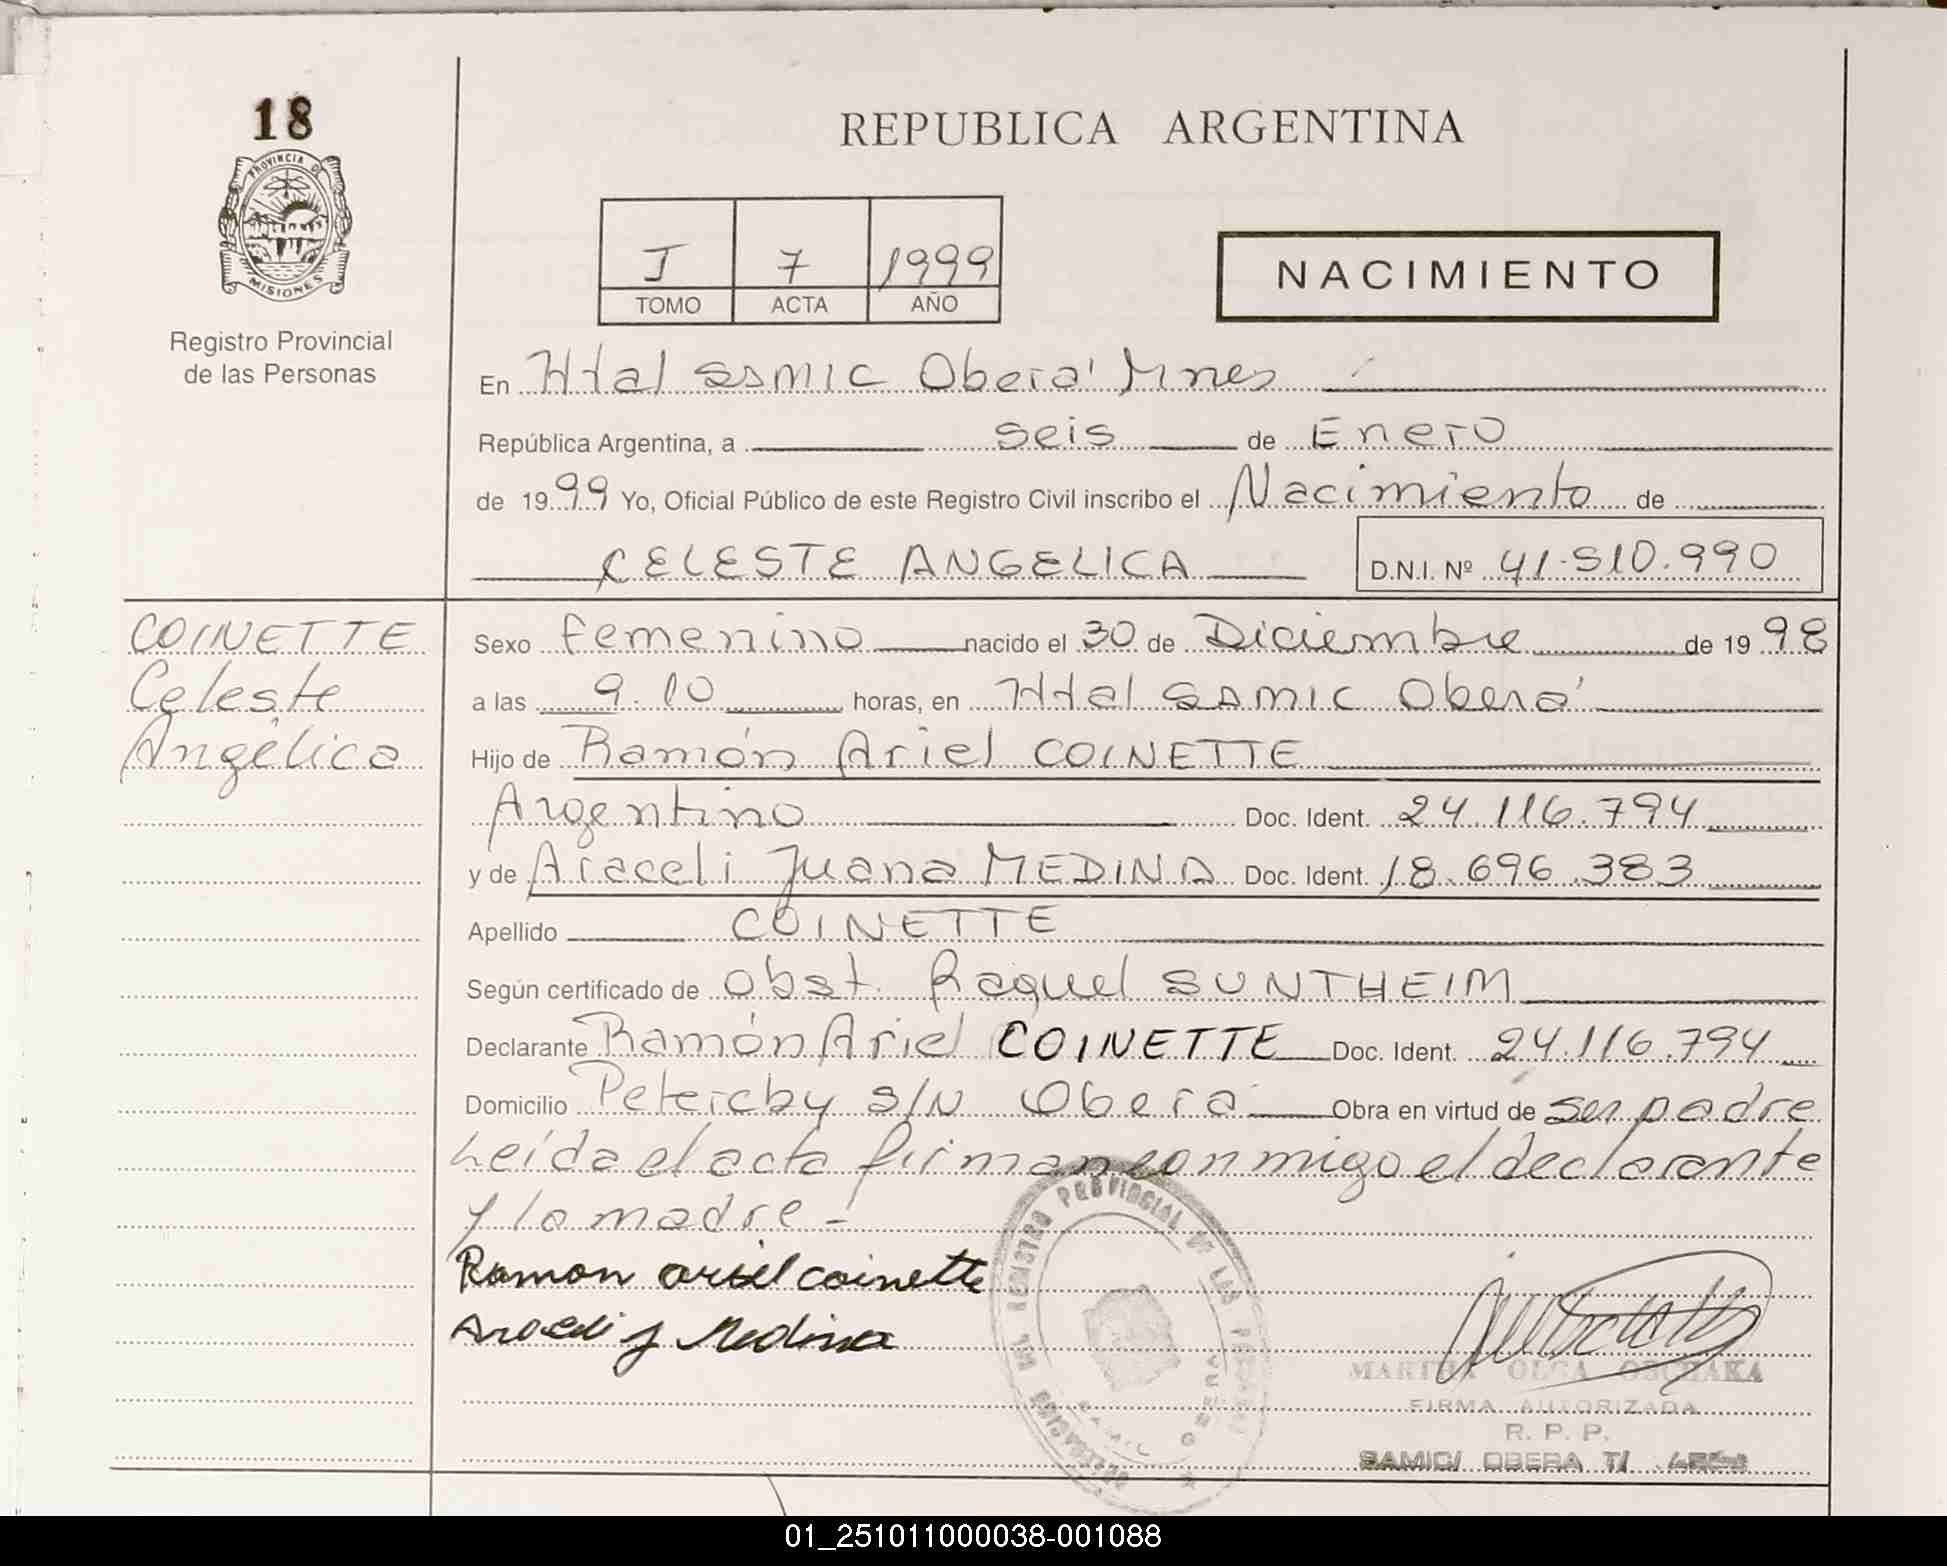 18
REPUBLICA ARGENTINA
PROVINCIA DE
MISIONES
Registro Provincial
de las Personas
I 7 1999
TOMO ACTA AÑO
NACIMIENTO
En Htal SAMIC Oberá Mnes
República Argentina, a seis de Enero
de 1999 Yo, Oficial Público de este Registro Civil inscribo el Nacimiento de
CELESTE ANGELICA D.N.I. Nº 41.510.990
COINETTE
Celeste
Angélica
Sexo femenino nacido el 30 de Diciembre de 1998
a las 9.10 horas, en Htal SAMIC Oberá
Hijo de Ramón Ariel COINETTE
Argentino Doc. Ident. 24.116.794
y de Araceli Juana MEDINA Doc. Ident. 18.696.383
Apellido COINETTE
Según certificado de Obst. Raquel SUNTHEIM
Declarante Ramón Ariel COINETTE Doc. Ident. 24.116.794
Domicilio S/N Oberá Obra en virtud de ser padre
Leída el acta firman conmigo el declarante
y la madre -
Ramon ariel coinette
Araceli J Medina
REGISTRO PROVINCIAL DE LAS
MARTHA OLGA
FIRMA AUTORIZADA
R. P. P.
SAMIC/ OBERA T/
01_251011000038-001088